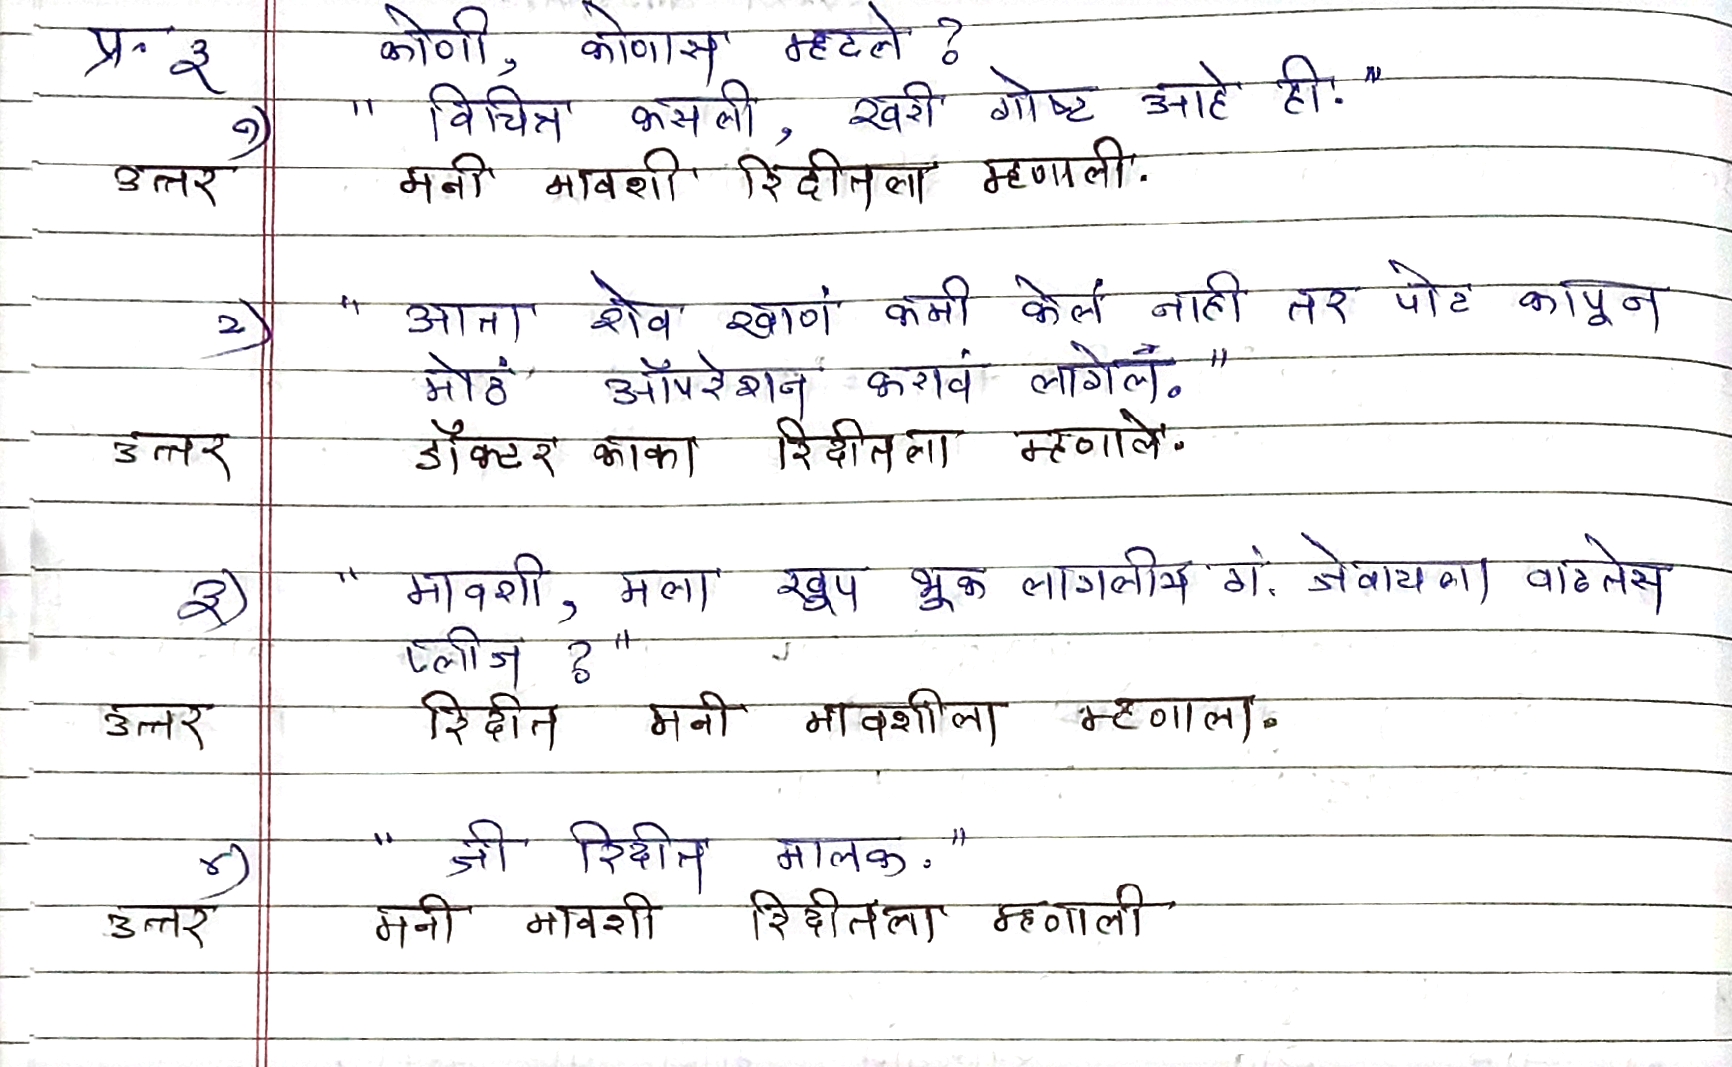 प्र. ३ कोणी, कोणास म्हटले ?
१) " विचित्र कसली, खरी गोष्ट आहे ही. "
उत्तर मनी मावशी रिदीतला म्हणाली.
२) " आता शेव खाणं कमी केलं नाही तर पोट कापून
मोठं ऑपरेशन करावं लागेल. "
उत्तर डॉक्टर काका रिदीतला म्हणाले.
३) " मावशी, मला खूप भूक लागलीय गं. जेवायला वाढतेस
प्लीज ? "
उत्तर रिदीत मनी मावशीला म्हणाला.
४) " जी रिदीत मालक. "
उत्तर मनी मावशी रिदीतला म्हणाली